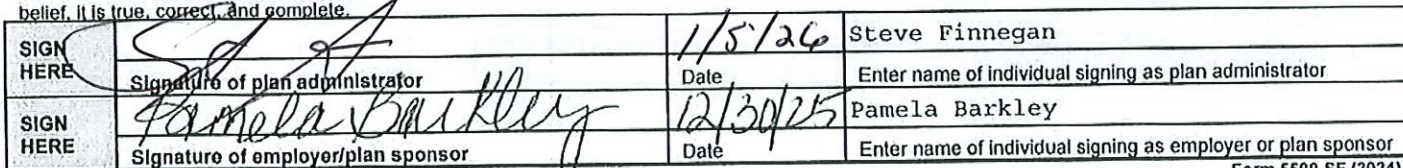 belief, it is true, correct, and complete.
SIGN HERE 1/5/26 Steve Finnegan
Signature of plan administrator Date Enter name of individual signing as plan administrator
SIGN HERE Pamela Barkley 12/30/25 Pamela Barkley
Signature of employer/plan sponsor Date Enter name of individual signing as employer or plan sponsor
Form 5500-SF (2024)